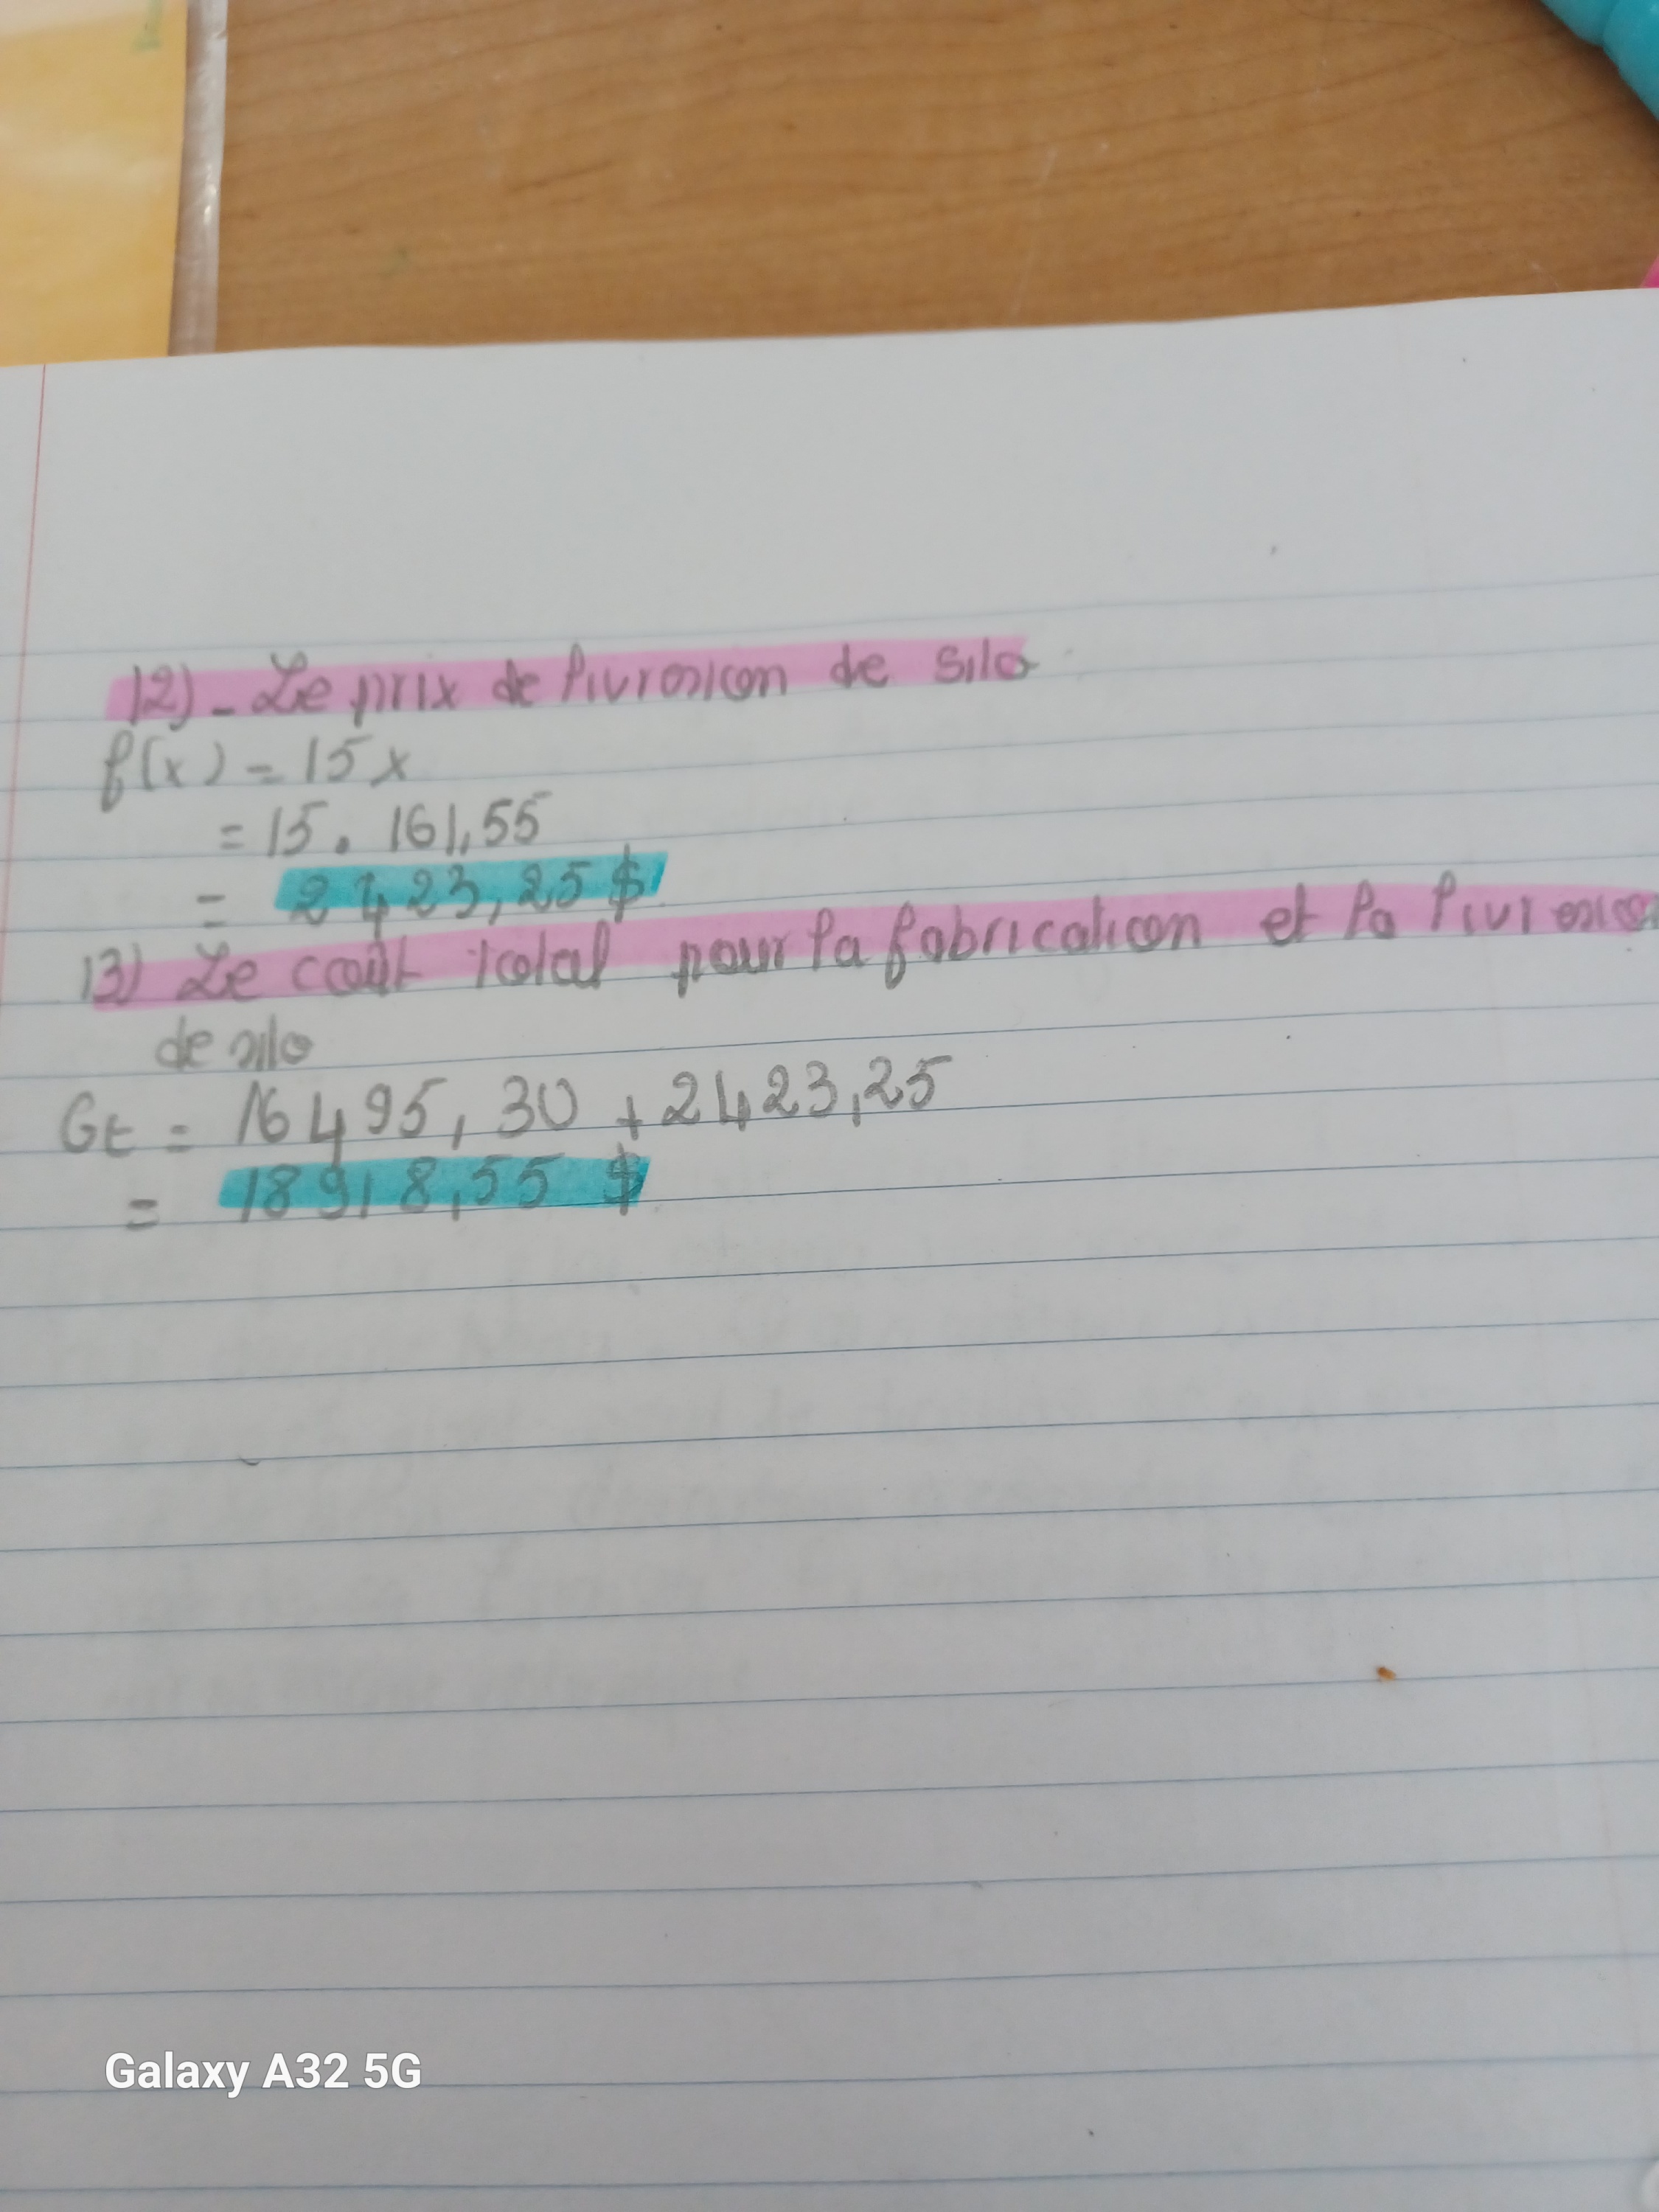 12) - Le prix de livraison de silo
f(x) = 15x
= 15. 161,55
= 2423,25 $
13) Le coût total pour la fabrication et la livraiso
de silo
Ct = 16495,30 + 2423,25
= 18918,55 $
Galaxy A32 5G